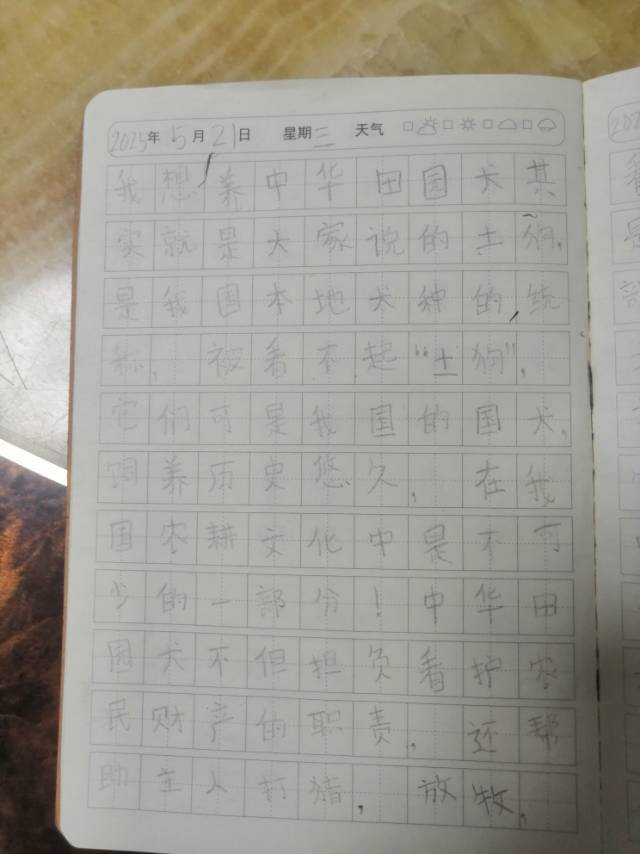 2025年5月21日 星期三 天气
我想养中华田园犬其
实就是大家说的土狗,
是我国本地犬种的,统
称, 被看不起“土狗”,
它们可是我国的国犬,
饲养历史悠久, 在我
国农耕文化中是不可
少的一部分!中华田
园犬不但担负看护农
民财产的职责, 还帮
助主人打猎, 放牧,